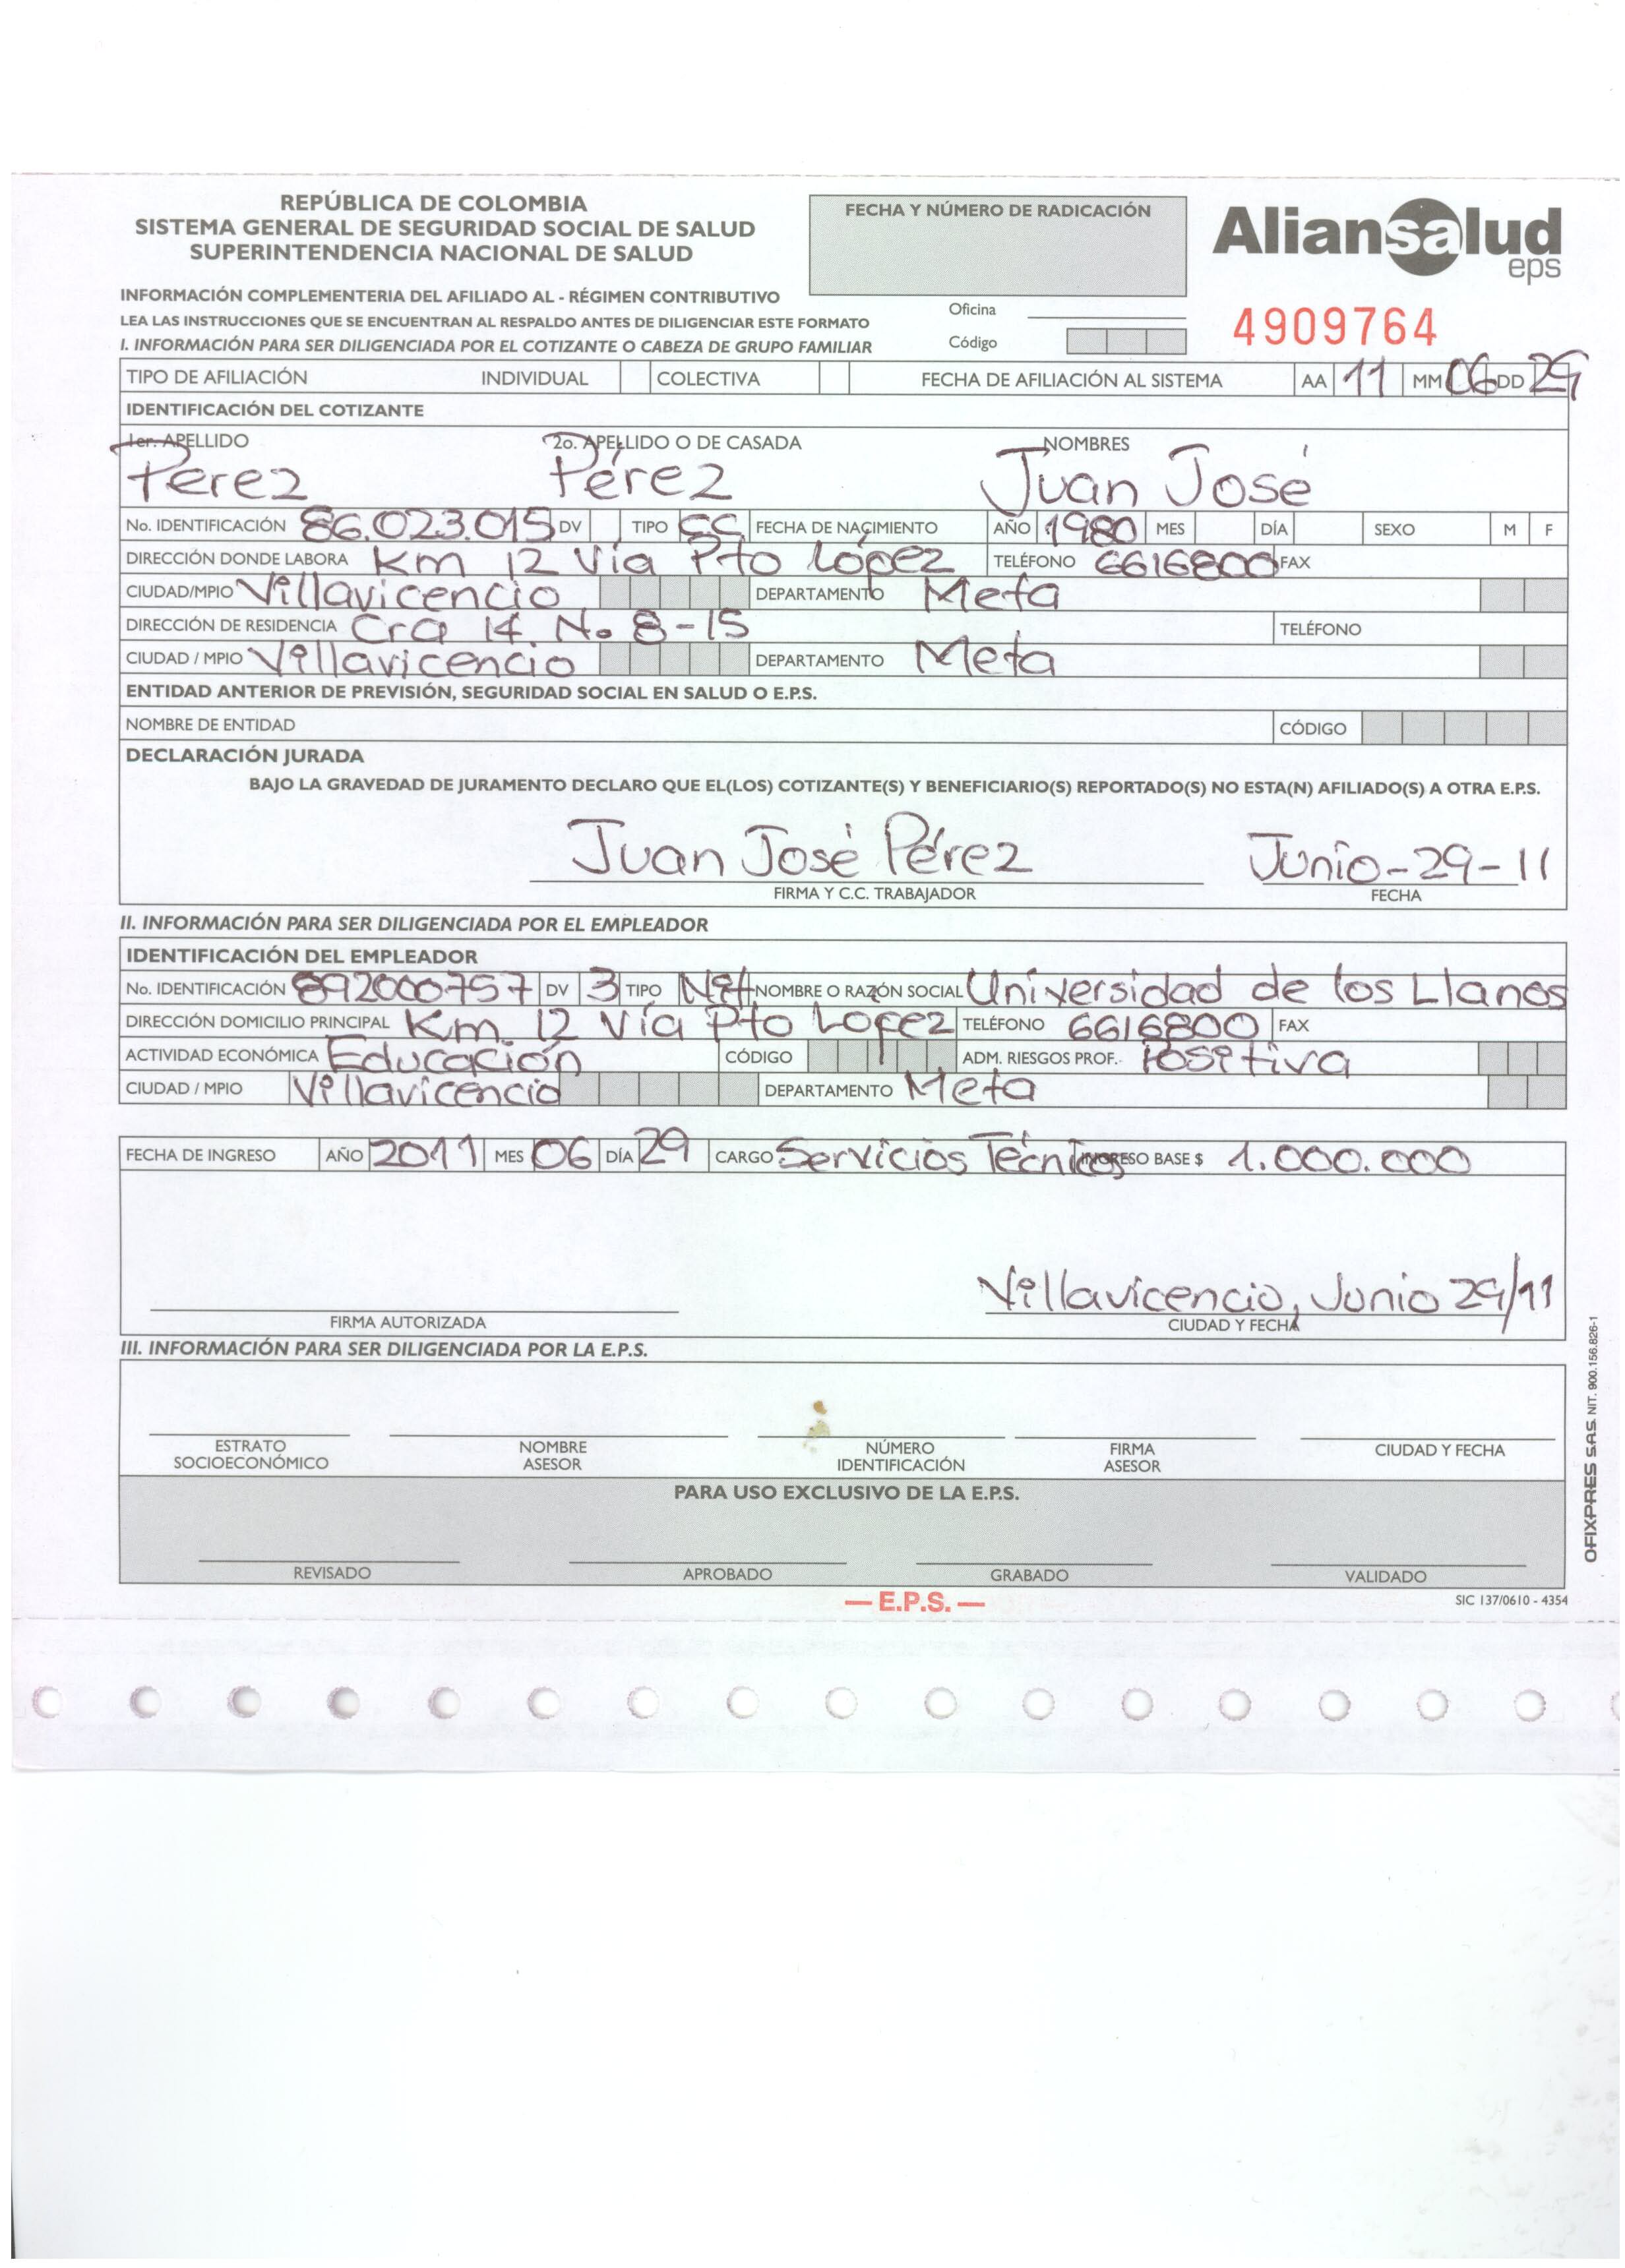 REPÚBLICA DE COLOMBIA
SISTEMA GENERAL DE SEGURIDAD SOCIAL DE SALUD
SUPERINTENDENCIA NACIONAL DE SALUD
FECHA Y NÚMERO DE RADICACIÓN
Aliansalud
eps
INFORMACIÓN COMPLEMENTERIA DEL AFILIADO AL - RÉGIMEN CONTRIBUTIVO
LEA LAS INSTRUCCIONES QUE SE ENCUENTRAN AL RESPALDO ANTES DE DILIGENCIAR ESTE FORMATO
Oficina
4909764
I. INFORMACIÓN PARA SER DILIGENCIADA POR EL COTIZANTE O CABEZA DE GRUPO FAMILIAR
Código
TIPO DE AFILIACIÓN INDIVIDUAL COLECTIVA FECHA DE AFILIACIÓN AL SISTEMA AA 11 MM 06 DD 29
IDENTIFICACIÓN DEL COTIZANTE
1er. APELLIDO 2o. APELLIDO O DE CASADA NOMBRES
Perez Pérez Juan José
No. IDENTIFICACIÓN 86.023.015 DV TIPO CC FECHA DE NACIMIENTO AÑO 1980 MES DÍA SEXO M F
DIRECCIÓN DONDE LABORA Km 12 Vía Pto López TELÉFONO 6616800 FAX
CIUDAD/MPIO Villavicencio DEPARTAMENTO Meta
DIRECCIÓN DE RESIDENCIA Cra 14 No 8-15 TELÉFONO
CIUDAD / MPIO Villavicencio DEPARTAMENTO Meta
ENTIDAD ANTERIOR DE PREVISIÓN, SEGURIDAD SOCIAL EN SALUD O E.P.S.
NOMBRE DE ENTIDAD CÓDIGO
DECLARACIÓN JURADA
BAJO LA GRAVEDAD DE JURAMENTO DECLARO QUE EL(LOS) COTIZANTE(S) Y BENEFICIARIO(S) REPORTADO(S) NO ESTA(N) AFILIADO(S) A OTRA E.P.S.
Juan José Pérez Junio-29-11
FIRMA Y C.C. TRABAJADOR FECHA
II. INFORMACIÓN PARA SER DILIGENCIADA POR EL EMPLEADOR
IDENTIFICACIÓN DEL EMPLEADOR
No. IDENTIFICACIÓN 892000757 DV 3 TIPO Nit NOMBRE O RAZÓN SOCIAL Universidad de los Llanos
DIRECCIÓN DOMICILIO PRINCIPAL Km 12 Vía Pto López TELÉFONO 6616800 FAX
ACTIVIDAD ECONÓMICA Educación CÓDIGO ADM. RIESGOS PROF. Positiva
CIUDAD / MPIO Villavicencio DEPARTAMENTO Meta
FECHA DE INGRESO AÑO 2011 MES 06 DÍA 29 CARGO Servicios Técnicos INGRESO BASE $ 1.000.000
Villavicencio, Junio 29/11
FIRMA AUTORIZADA CIUDAD Y FECHA
III. INFORMACIÓN PARA SER DILIGENCIADA POR LA E.P.S.
ESTRATO SOCIOECONÓMICO NOMBRE ASESOR NÚMERO IDENTIFICACIÓN FIRMA ASESOR CIUDAD Y FECHA
PARA USO EXCLUSIVO DE LA E.P.S.
REVISADO APROBADO GRABADO VALIDADO
— E.P.S. —
SIC 137/0610 - 4354
OFIXPRES SAS. NIT. 900.156.826-1